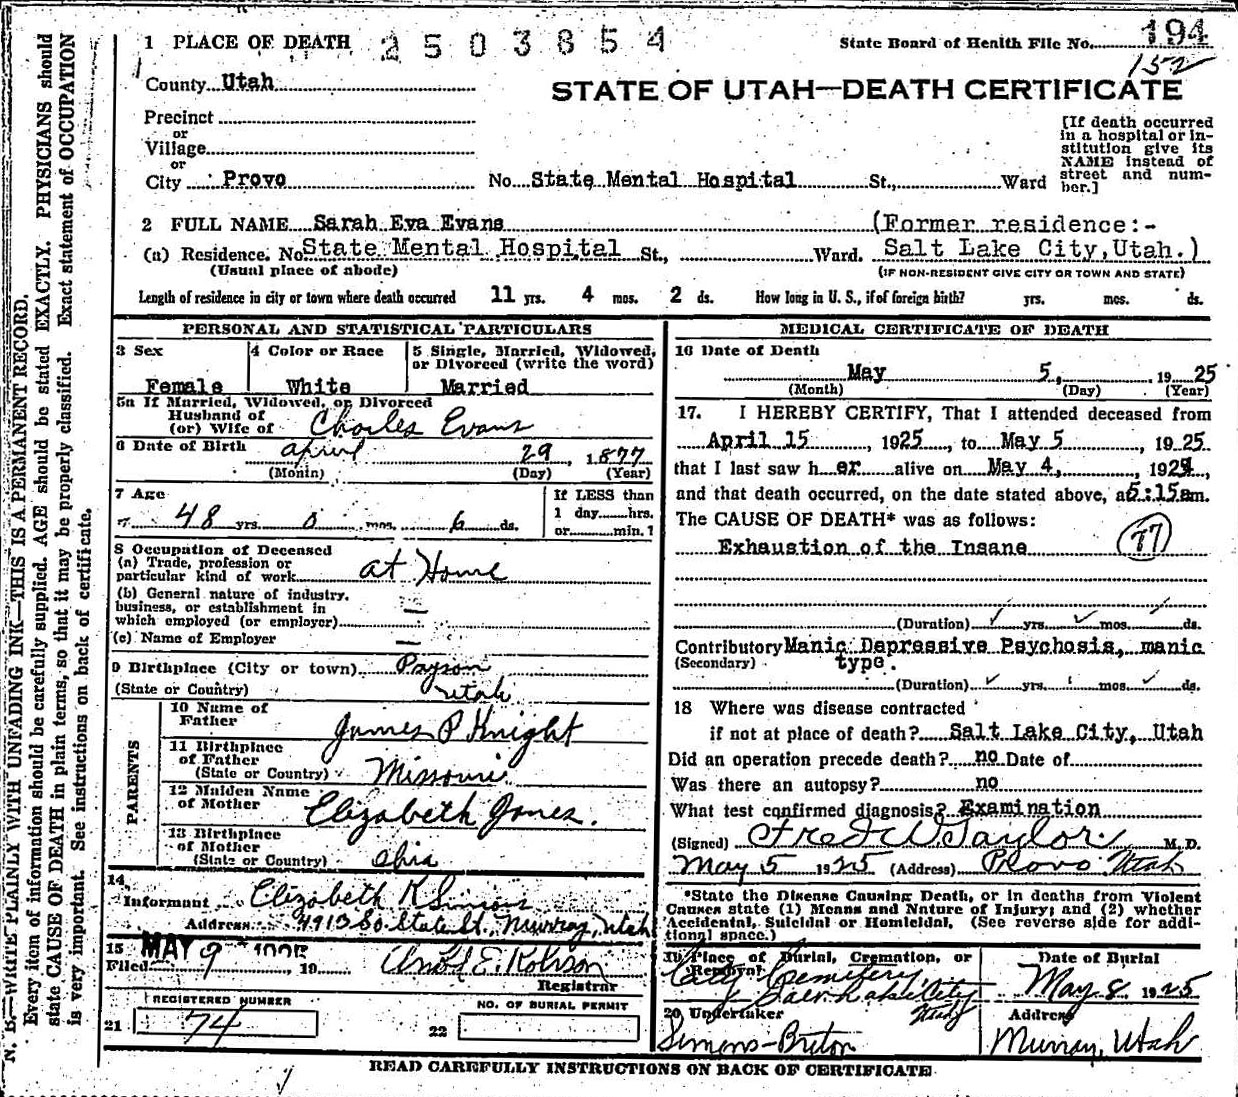 1 PLACE OF DEATH 2503854
State Board of Health File No. 194
152
County Utah
STATE OF UTAH—DEATH CERTIFICATE
Precinct
or
Village
or
City Provo No. State Mental Hospital St., Ward
[If death occurred
in a hospital or in-
stitution give its
NAME instead of
street and num-
ber.]
2 FULL NAME Sarah Eva Evans (Former residence:-
(a) Residence. No. State Mental Hospital St., Ward. Salt Lake City, Utah.)
(Usual place of abode) (IF NON-RESIDENT GIVE CITY OR TOWN AND STATE)
Length of residence in city or town where death occurred 11 yrs. 4 mos. 2 ds. How long in U. S., if of foreign birth? yrs. mos. ds.
PERSONAL AND STATISTICAL PARTICULARS
3 Sex 4 Color or Race 5 Single, Married, Widowed,
or Divorced (write the word)
Female White Married
5a If Married, Widowed, or Divorced
Husband of
(or) Wife of Charles Evans
6 Date of Birth April 29, 1877
(Month) (Day) (Year)
7 Age If LESS than
48 yrs. 0 mos. 6 ds. 1 day hrs.
or min.?
8 Occupation of Deceased
(a) Trade, profession or
particular kind of work At Home
(b) General nature of industry,
business, or establishment in
which employed (or employer) —
(c) Name of Employer —
9 Birthplace (City or town) Payson
(State or Country) Utah
PARENTS
10 Name of
Father James P Knight
11 Birthplace
of Father
(State or Country) Missouri
12 Maiden Name
of Mother Elizabeth Jones.
13 Birthplace
of Mother
(State or Country) Ohio
14
Informant Elizabeth K Simons
Address 4913 So. State St., Murray, Utah
15 MAY 9 1925
Filed , 19 Registrar
REGISTERED NUMBER
21 74
NO. OF BURIAL PERMIT
22
MEDICAL CERTIFICATE OF DEATH
16 Date of Death
May 5, 1925
(Month) (Day) (Year)
17. I HEREBY CERTIFY, That I attended deceased from
April 15, 1925, to May 5, 1925
that I last saw her alive on May 4,
and that death occurred, on the date stated above, at 5:15am.
The CAUSE OF DEATH* was as follows:
Exhaustion of the Insane 77
(Duration) yrs. mos. ds.
Contributory Manic Depressive Psychosis, manic
(Secondary) type.
(Duration) yrs. mos. ds.
18 Where was disease contracted
if not at place of death? Salt Lake City, Utah
Did an operation precede death? no Date of
Was there an autopsy? no
What test confirmed diagnosis? Examination
(Signed) Fred W Taylor M. D.
May 5 1925 (Address) Provo Utah
*State the Disease Causing Death, or in deaths from Violent
Causes state (1) Means and Nature of Injury; and (2) whether
Accidental, Suicidal or Homicidal. (See reverse side for addi-
tional space.)
19 Place of Burial, Cremation, or
Removal Date of Burial
City Cemetery
Salt Lake City
Utah May 8 1925
20 Undertaker Address
Simons- Murray, Utah
READ CAREFULLY INSTRUCTIONS ON BACK OF CERTIFICATE
N. B.—WRITE PLAINLY WITH UNFADING INK—THIS IS A PERMANENT RECORD.
Every item of information should be carefully supplied. AGE should be stated EXACTLY. PHYSICIANS should
state CAUSE OF DEATH in plain terms, so that it may be properly classified. Exact statement of OCCUPATION
is very important. See instructions on back of certificate.